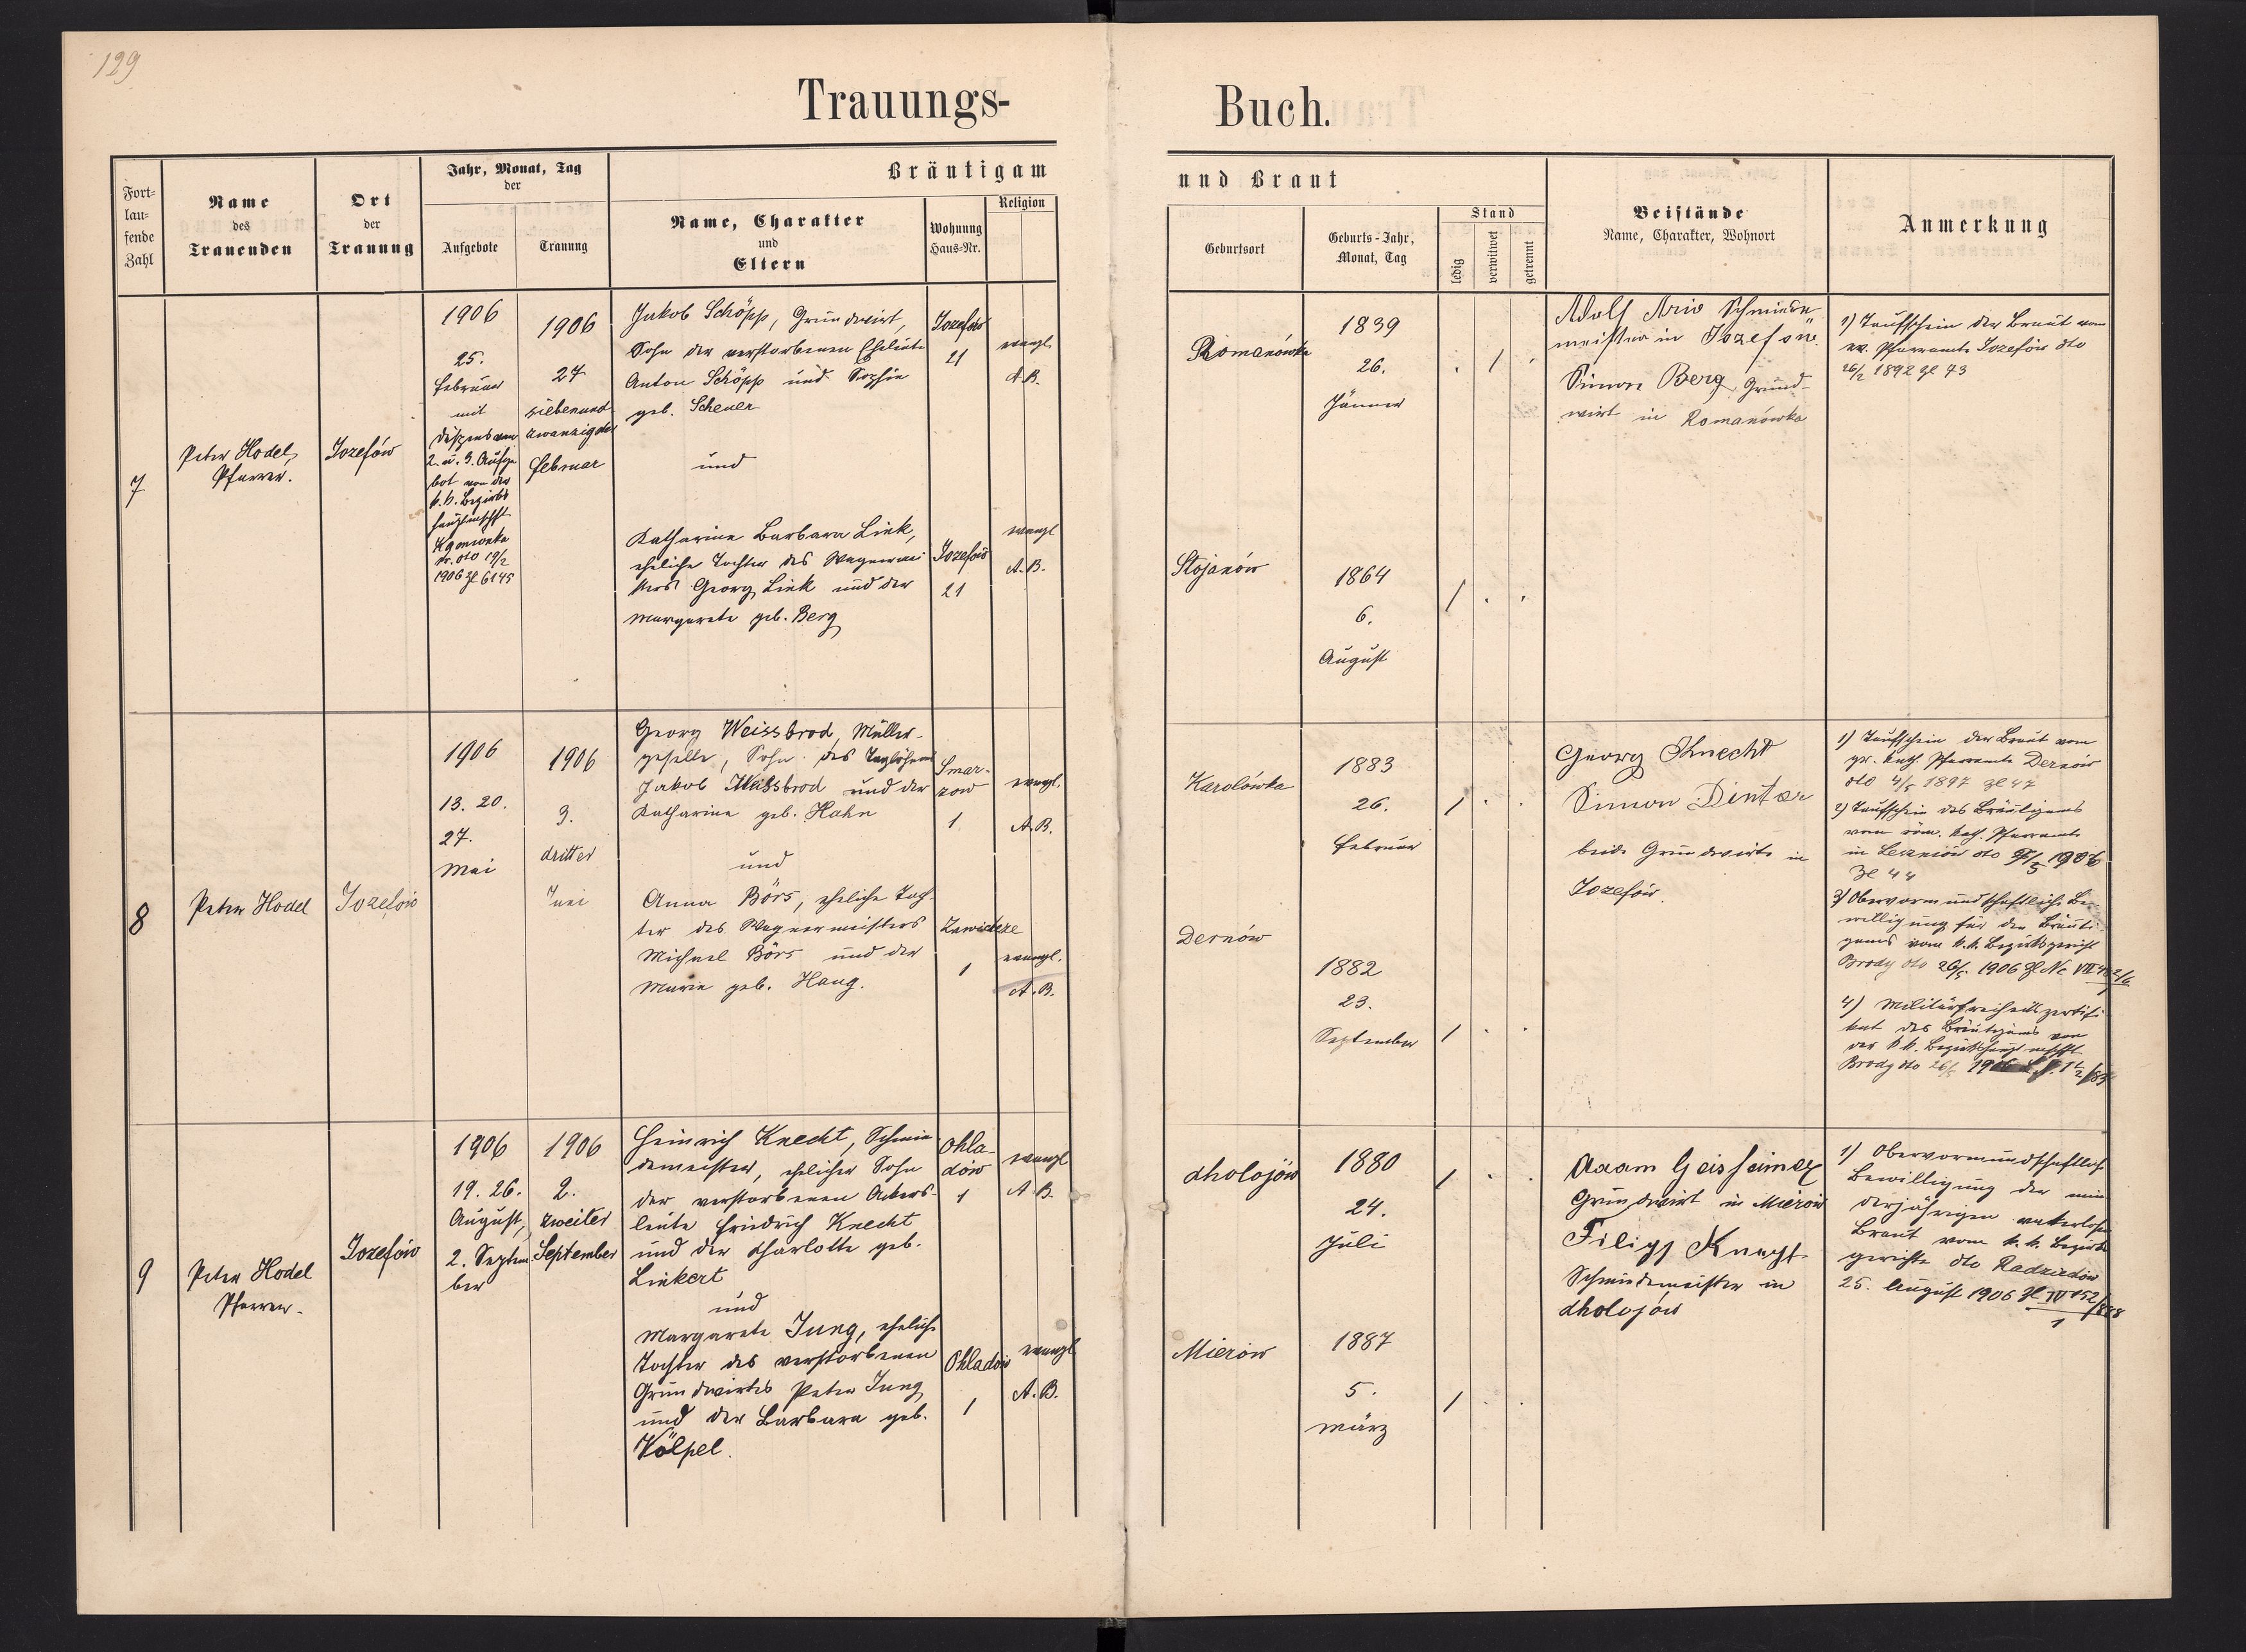 129
Trauungs-
Buch.
Fort-
lau-
fende
Zahl
Name
des
Trauenden
Ort
der
Trauung
Jahr, Monat, Tag
der
Aufgebote
Trauung
Bräutigam
Name, Charakter
und
Eltern
Wohnung
Haus-Nr.
Religion
und Braut
Geburtsort
Geburts-Jahr,
Monat, Tag
Stand
ledig
verwitwet
getrennt
Beistände
Name, Charakter, Wohnort
Anmerkung
7
Peter Hodel,
Pfarrer.
Josefów
1906
25.
Februar
mit
Dispens vom
2. u. 3. Aufge
bot von der
k. k. Bezirks
hauptmschft
dto 19/2
1906 Zl 6145
1906
27
siebenund
zwanzigster
Februar
Jakob Schöpp, Grundwirt,
Sohn der verstorbenen Eheleute
Anton Schöpp und Sophie
geb. Scheuer
und
Katharina Barbara Link,
eheliche Tochter des Wagnermei
sters Georg Link und der
Margarete geb. Berg
Jozefów
21
evangl.
A.B.
Jozefów
21
evangl
A.B.
Romanówka
1839
26.
Jänner
Stojanów
1864
6.
August
Adolf Schmiede
meister in Jozefów.
Simon Berg Grund-
wirt in Romanówka
1) Taufschein der Braut vom
ev. Pfarramte Jozefów dto
26/2 1892 Zl 73
8
Peter Hodel
Jozefów
1906
13. 20.
27.
Mai
1906
3.
dritter
Juni
Georg Weissbrod, Müller-
geselle, Sohn des Taglöhners
Jakob Weissbrod und der
Katharina geb. Hahn
und
Anna Börs, eheliche Toch
ter des Wagnermeisters
Michael Börs und der
Maria geb. Haug.
Smar-
zow
1
evangl.
A.B.
Zawidcze
1
evangl.
A.B.
Karolówka
1883
26.
Februar
Dernów
1882
23.
September
Georg Knecht
Simon Dinter
beide Grundwirte in
Jozefów.
1) Taufschein der Braut vom
gr. kath. Pfarramte Dernów
dto 4/5 1897 Zl 47
2) Taufschein des Bräutigams
vom röm. kath. Pfarramte
in Leszniów dto 1906
Zl 44
3) Obervormundschaftliche Be-
willigung für den Bräuti
gams vom k. k. Bezirksgericht
Brody dto 26/5 1906 Zl Nc VII
4) Militärfreiheitszertifi
kat des Bräutigams von
der k k. Bezirkshauptmschft
Brody dto 26/5
9
Peter Hodel
Pfarrer.
Jozefów
1906
19. 26.
August,
2. Septem
ber
1906
2.
zweiter
September
Heinrich Knecht, Schmie
demeister, ehelicher Sohn
der verstorbenen Ackers-
leute Friedrich Knecht
und der Charlotte geb.
Linkert
und
Margarete Jung, eheliche
Tochter des verstorbenen
Grundwirtes Peter Jung
und der Barbara geb.
Völpel.
Ohla-
dów
1
evangl
A.B.
Ohladów
1
evangl
A.B.
Cholojów
1880
24.
Juli
Mierów
1887
5.
März
Adam Geissheimer
Grundwirt in Mierów
Filipp Knecht
Schmiedemeister in
Cholojów
1) Obervormundschaftliche
Bewilligung der min
derjährigen vaterlosen
Braut vom k. k. Bezirks
gerichte dto Radziechów
25. August 1906 Zl IV 152/888
1